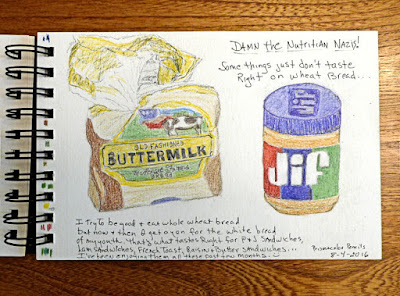 DAMN the NutritiaN NAZIS!
Some things just don't taste
Right on wheat Bread...
OLD FASHIONED
BUTTERMILK
BREAD
Jif
I try to be good & eat whole wheat bread
but now & then I get a yen for the white bread
of my youth. That's what tastes Right for P & J Sandwiches,
Ham Sandwiches, French Toast, Raisin & Butter Sandwiches...
I've been enjoying them all these past few months.
Prismacolor Pencils
8-4-2016